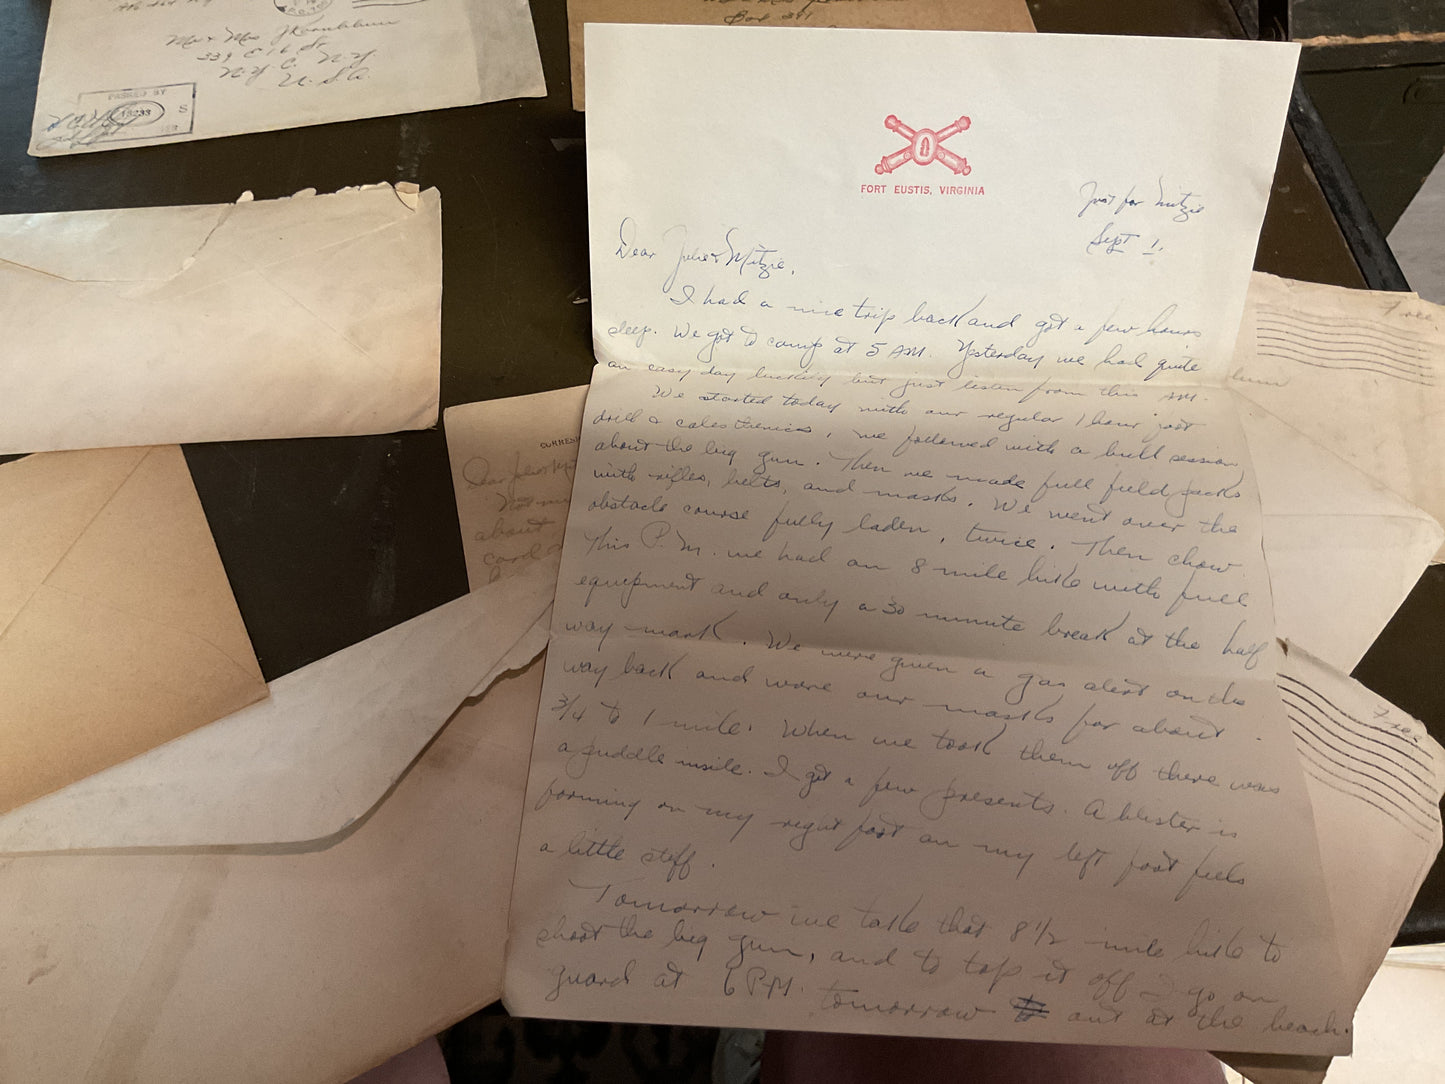 Mr & Mrs J Kornblum
339 E 16 St
N.Y.C. N.Y.
U.S.A.
PASSED BY
18233
S
Box 341
FORT EUSTIS, VIRGINIA
Just for Mitzie
Sept 1.
Dear Julie & Mitzie,
I had a nice trip back and got a few hours
sleep. We got to camp at 5 AM. Yesterday we had quite
an easy day but just listen from this AM.
We started today with our regular 1 hour foot
drill & calesthenics, we followed with a bull session
about the big gun. Then we made full field packs
with rifles, belts, and masks. We went over the
obstacle course fully laden, twice. Then chow.
This P.M. we had an 8 mile hike with full
equipment and only a 30 minute break at the half
way mark. We were given a gas alert on the
way back and wore our masks for about
3/4 to 1 mile. When we took them off there was
a puddle inside. I got a few presents. A blister is
forming on my right foot an my left foot feels
a little stiff.
Tomorrow we take that 8 1/2 mile hike to
shoot the big gun, and to top it off I go on
guard at 6 P.M. tomorrow out at the beach.
Free
Free
CURRES
Dear Julie & Mit
Not m
about
card